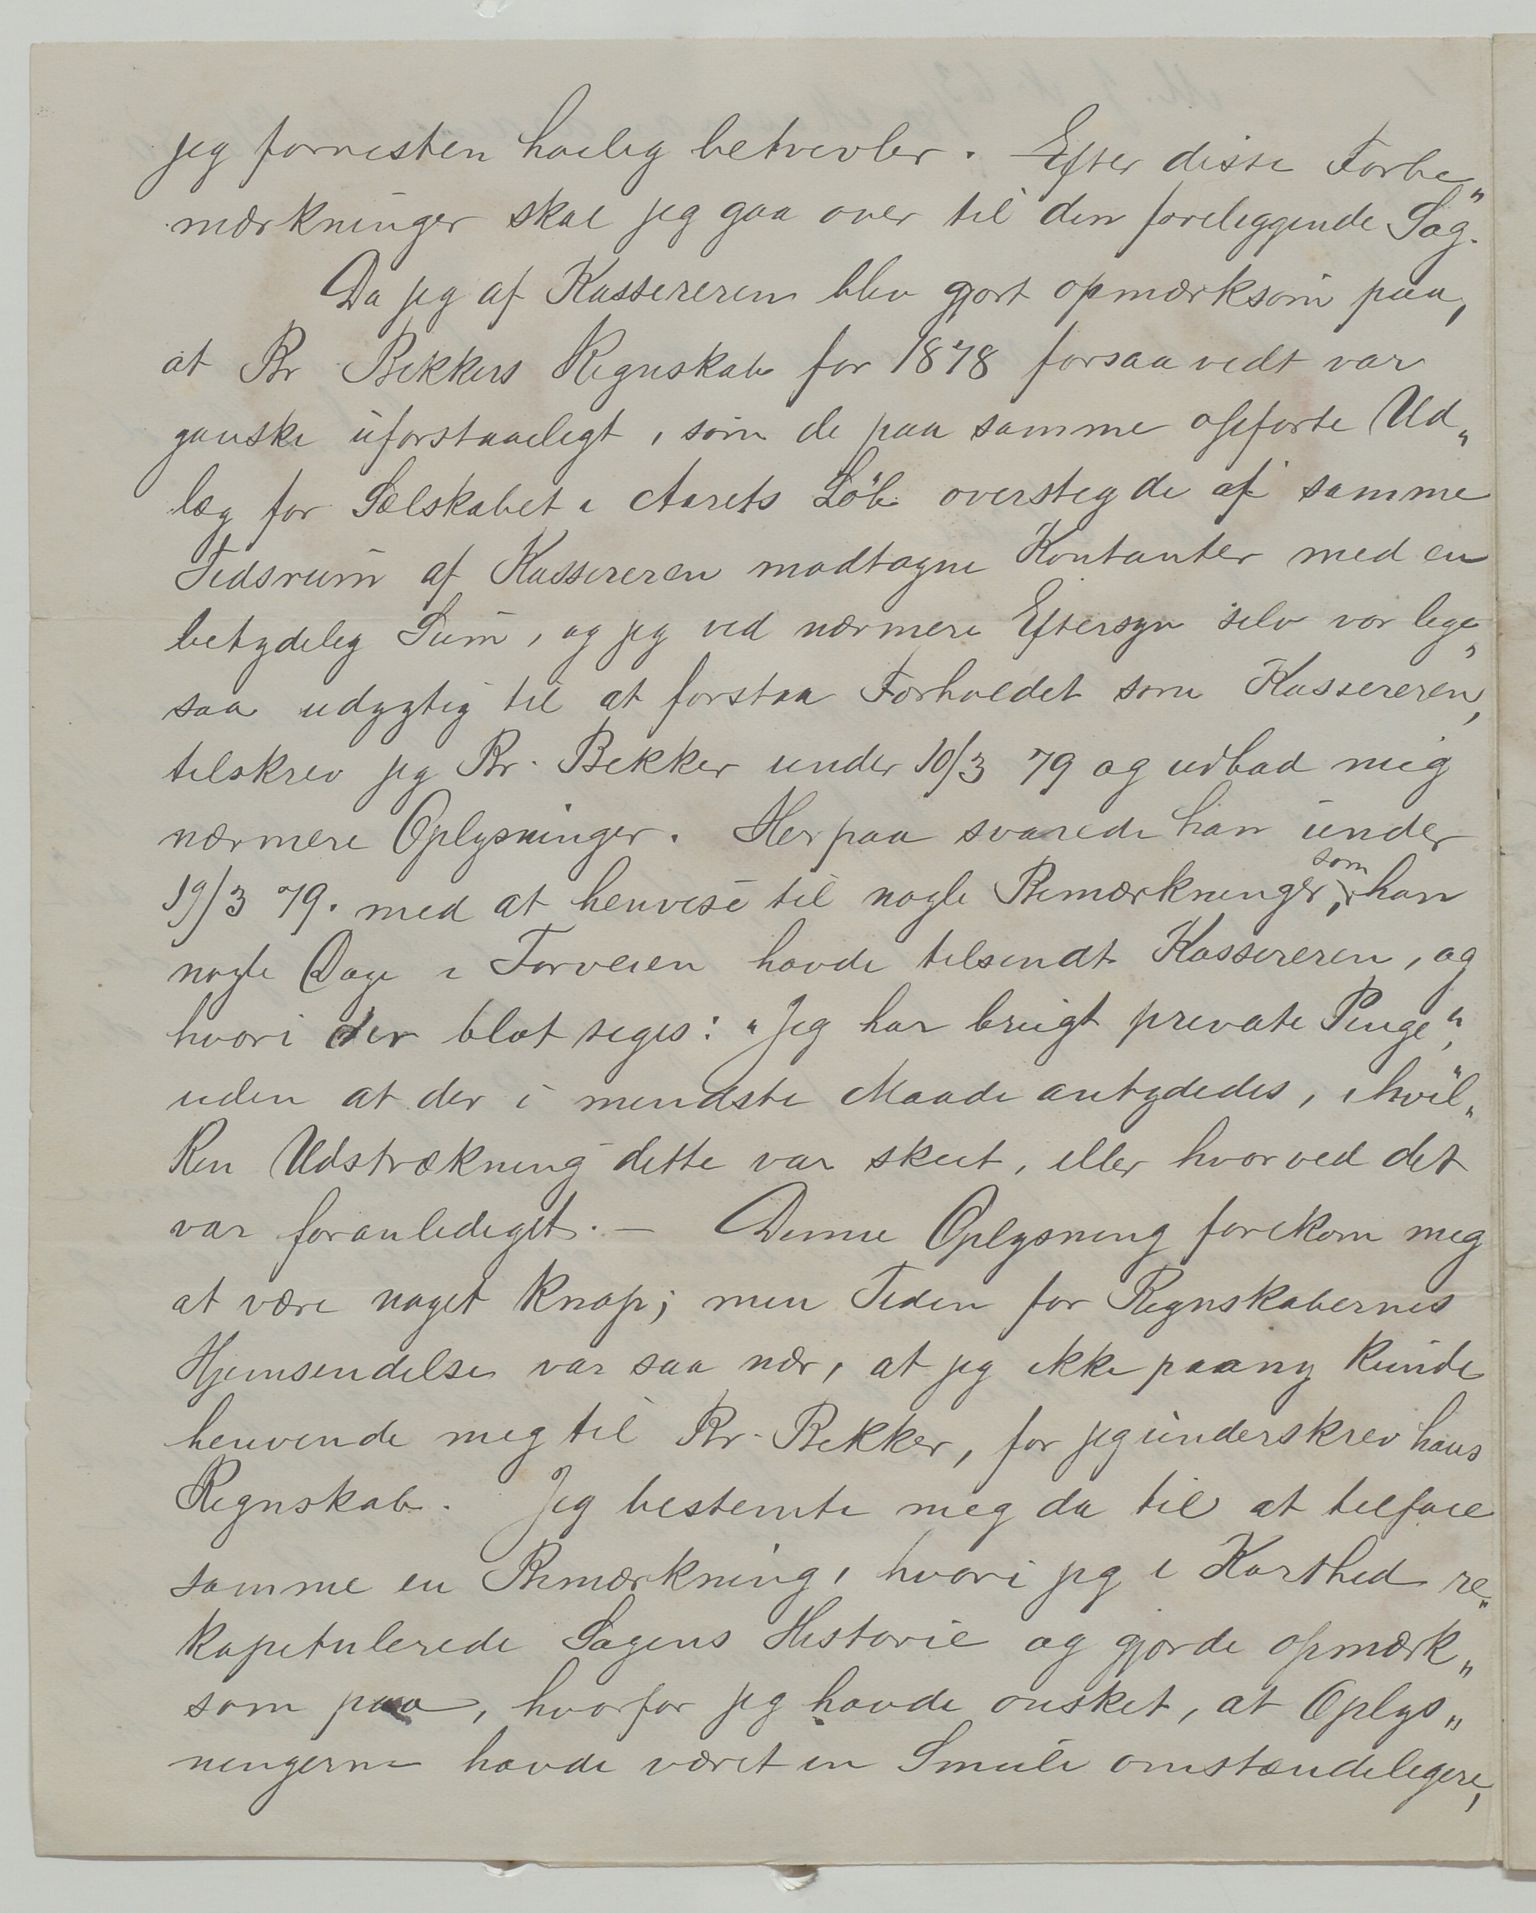 jeg forresten hoilig betvivler. Efter disse Forbe„
mærkninger skal jeg gaa over til den foreliggende Sag.
Da jeg af Kassereren blev gjort opmærksom paa,
at Br Bekkers Regnskab for 1878 forsaavedt var
ganske uforstaaeligt, som de paa samme opførte Ud„
læg for Selskabet i Aarets Löb oversteg de af samme
Tidsrum af Kassereren modtagne Kontanter med en
betydelig Sum, og jeg ved nærmere Eftersyn selv var lige„
saa udygtig til at forstaa Forholdet som Kassereren,
tilskrev jeg Br. Bekker under 10/3 79 og udbad mig
nærmere Oplysninger. Herpaa svarede han under
19/3 79. med at henvise til nogle Bemærkninger, som han
nogle Dage i Forveien havde tilsendt Kassereren, og
hvori der blot siges: „Jeg har brugt private Penge“,
uden at der i mindste Maade antydedes, i hvil„
ken Udstrækning dette var skeet, eller hvorved det
var foranlediget. — Denne Oplysning forekom mig
at være noget knap; men Tiden for Regnskabernes
Hjemsendelse var saa nær, at jeg ikke paany kunde
henvende mig til Br. Bekker, før jeg underskrev hans
Regnskab. Jeg bestemte mig da til at tilføie
samme en Bemærkning, hvori jeg i Korthed re„
kapitulerede Sagens Historie og gjorde opmærk„
som paa, hvorfor jeg havde onsket, at Oplys„
ningerne havde været en Smule omstændeligere,